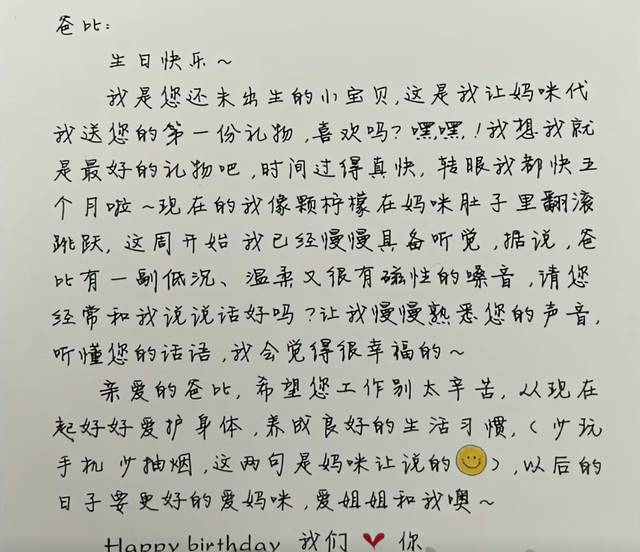 爸比:
生日快乐~
我是您还未出生的小宝贝,这是我让妈咪代
我送您的第一份礼物,喜欢吗?嘿嘿!我想我就
是最好的礼物吧,时间过得真快,转眼我都快五
个月啦~现在的我像颗柠檬在妈咪肚子里翻滚
跳跃,这周开始我已经慢慢具备听觉,据说,爸
比有一副低沉、温柔又很有磁性的嗓音,请您
经常和我说说话好吗?让我慢慢熟悉您的声音,
听懂您的话语,我会觉得很幸福的~
亲爱的爸比,希望您工作别太辛苦,从现在
起好好爱护身体,养成良好的生活习惯,(少玩
手机少抽烟,这两句是妈咪让说的),以后的
日子要更好的爱妈咪,爱姐姐和我噢~
Happy birthday 我们 你